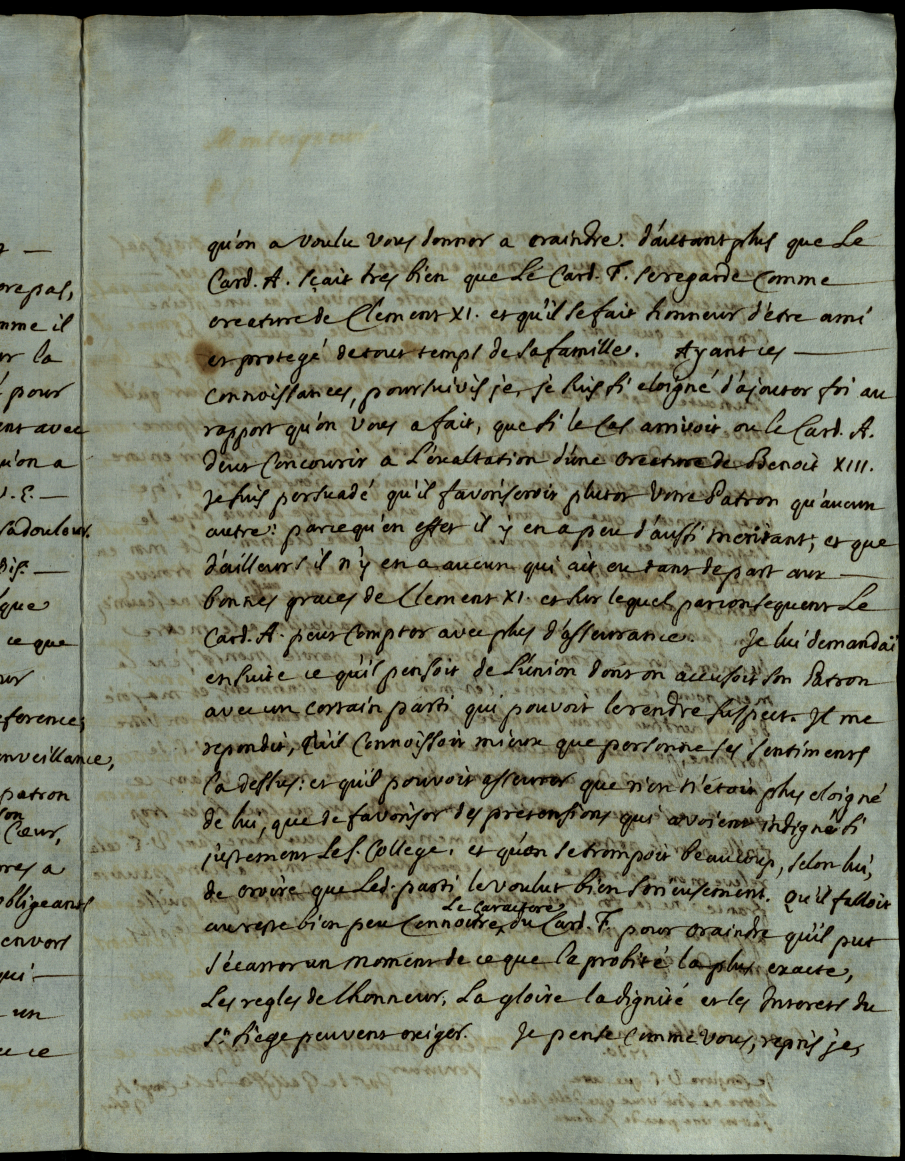 qu'on a voulu vous donner a craindre. d'autant plus que Le
Card. A. sçait tres bien que Le Card. F. se regarde comme
creature de Clement XI. et qu'il se fait honneur d'étre ami
et protegé de tout temps de sa famille. Ayant ces —
connoissances, poursuivis je, je suis si eloigné d'ajouter foi au
rapport qu'on vous a fait, que si le cas arrivoit ou le Card. A.
deut concourir a L'exaltation d'une creature de Benoit XIII.
Je suis persuadé qu'il favoriseroit plutot votre Patron qu'aucun
autre: parce qu'en effet il y en a peu d'aussi meritant; et que
d'ailleurs il n'y en a aucun qui ait eu tant de part aux —
bonnes graces de Clement XI. et sur lequel parconsequent Le
Card. A. peut compter avec plus d'asseurance. Je lui demandai
ensuite ce qu'il pensoit de L'union dont on accusoit son Patron
avec un certain parti qui pouvoit le rendre suspect. Il me
repondit, qu'il connoissoit mieux que personne ses sentiments
la dessus: et qu'il pouvoit asseurer que rien n'étoit plus eloigné
de lui, que de favoriser des pretensions qui avoient indigné si
justement Le S. College. et qu'on se trompoit beaucoup, selon lui,
de croire que Led. parti le voulut bien serieusement. Qu'il falloit
au reste bien peu connoitre Le Caractere du Card. F. pour craindre qu'il put
s'écarter un moment de ce que la probité la plus exacte,
Les regles de l'honneur, La gloire la dignité et les Interets du
St. Siege peuvent exiger. Je pense comme vous, repris je,
repas,
mme il
ur la
pour
ent avec
qu'on a
V. E. —
sa douleur.
que
ce que
eference,
enveillance,
patron
son
Cœur,
res a
obligeants
envers
qui —
un
ce